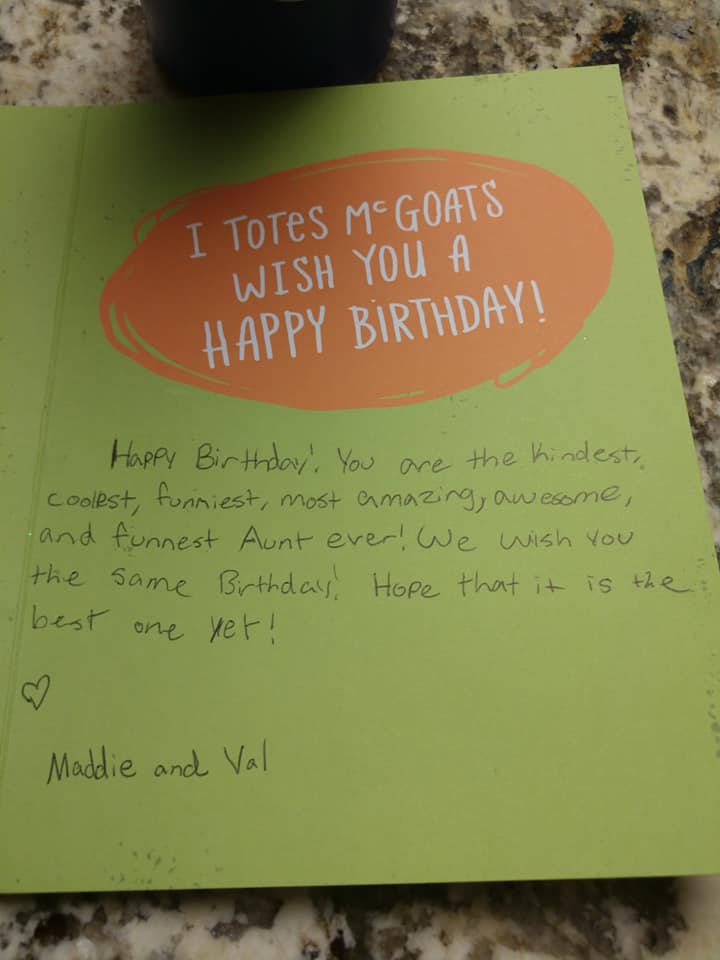 I TOTES McGOATS
WISH YOU A
HAPPY BIRTHDAY!
Happy Birthday! You are the kindest,
coolest, funniest, most amazing, awesome,
and funnest Aunt ever! We wish you
the same Birthday! Hope that it is the
best one yet!
♡
Maddie and Val